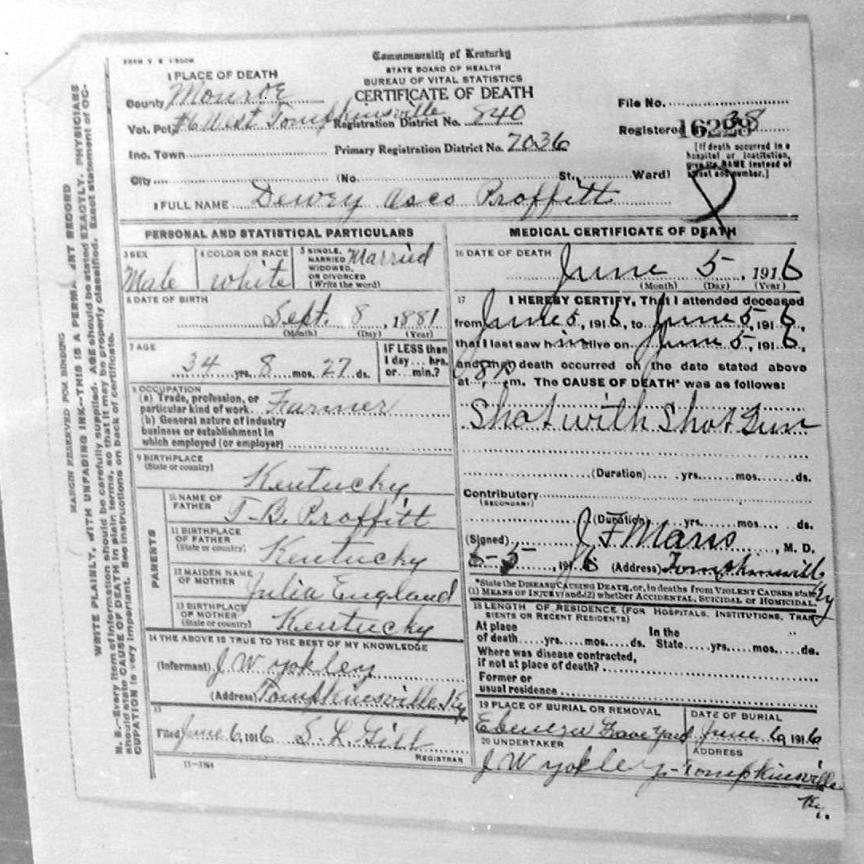 FORM V. S. 1-500M
Commonwealth of Kentucky
STATE BOARD OF HEALTH
BUREAU OF VITAL STATISTICS
CERTIFICATE OF DEATH
1 PLACE OF DEATH
County Monroe
Vot. Pct. #6 West Tompkinsville Registration District No. 840
Inc. Town Primary Registration District No. 7036
City (No. St., Ward)
File No. 16229
Registered 38
[If death occurred in a hospital or institution, give its NAME instead of street and number.]
2 FULL NAME Dewey Asco Proffitt
PERSONAL AND STATISTICAL PARTICULARS
3 SEX
Male
4 COLOR OR RACE
white
5 SINGLE, MARRIED WIDOWED, OR DIVORCED (Write the word)
Married
6 DATE OF BIRTH
Sept. 8, 1881
(Month) (Day) (Year)
7 AGE
34 yrs. 8 mos. 27 ds.
IF LESS than 1 day... hrs. or... min.?
8 OCCUPATION
(a) Trade, profession, or particular kind of work. Farmer
(b) General nature of industry business or establishment in which employed (or employer)
9 BIRTHPLACE
(State or country)
Kentucky
PARENTS
10 NAME OF FATHER
T. B. Proffitt
11 BIRTHPLACE OF FATHER
(State or country)
Kentucky
12 MAIDEN NAME OF MOTHER
Julia England
13 BIRTHPLACE OF MOTHER
(State or country)
Kentucky
14 THE ABOVE IS TRUE TO THE BEST OF MY KNOWLEDGE
(Informant) J W Yokley
(Address) Tompkinsville Ky
15
Filed June 6, 1916 S. L. Gill
REGISTRAR
11-3184
MEDICAL CERTIFICATE OF DEATH
16 DATE OF DEATH
June 5, 1916
(Month) (Day) (Year)
17 I HEREBY CERTIFY, That I attended deceased
from June 5, 1916, to June 5, 1916,
that I last saw him alive on June 5, 1916,
and that death occurred on the date stated above
at 8 P m. The CAUSE OF DEATH* was as follows:
Shot with Shot Gun
(Duration) yrs. mos. ds.
Contributory
(SECONDARY)
(Duration) yrs. mos. ds.
(Signed) J F Marrs, M. D.
6-5, 1916 (Address) Tompkinsville Ky
*State the DISEASE CAUSING DEATH, or, in deaths from VIOLENT CAUSES state (1) MEANS OF INJURY; and (2) whether ACCIDENTAL, SUICIDAL or HOMICIDAL.
18 LENGTH OF RESIDENCE (FOR HOSPITALS, INSTITUTIONS, TRANSIENTS OR RECENT RESIDENTS)
At place of death yrs. mos. ds. In the State yrs. mos. ds.
Where was disease contracted, if not at place of death?
Former or usual residence
19 PLACE OF BURIAL OR REMOVAL
Ebenezer Grave Yard
DATE OF BURIAL
June 6, 1916
20 UNDERTAKER
J W Yokley
ADDRESS
Tompkinsville Ky.
MARGIN RESERVED FOR BINDING
WRITE PLAINLY, WITH UNFADING INK—THIS IS A PERMANENT RECORD
N. B.—Every item of information should be carefully supplied. AGE should be stated EXACTLY. PHYSICIANS
should state CAUSE OF DEATH in plain terms, so that it may be properly classified. Exact statement of OC-
CUPATION is very important. See instructions on back of certificate.